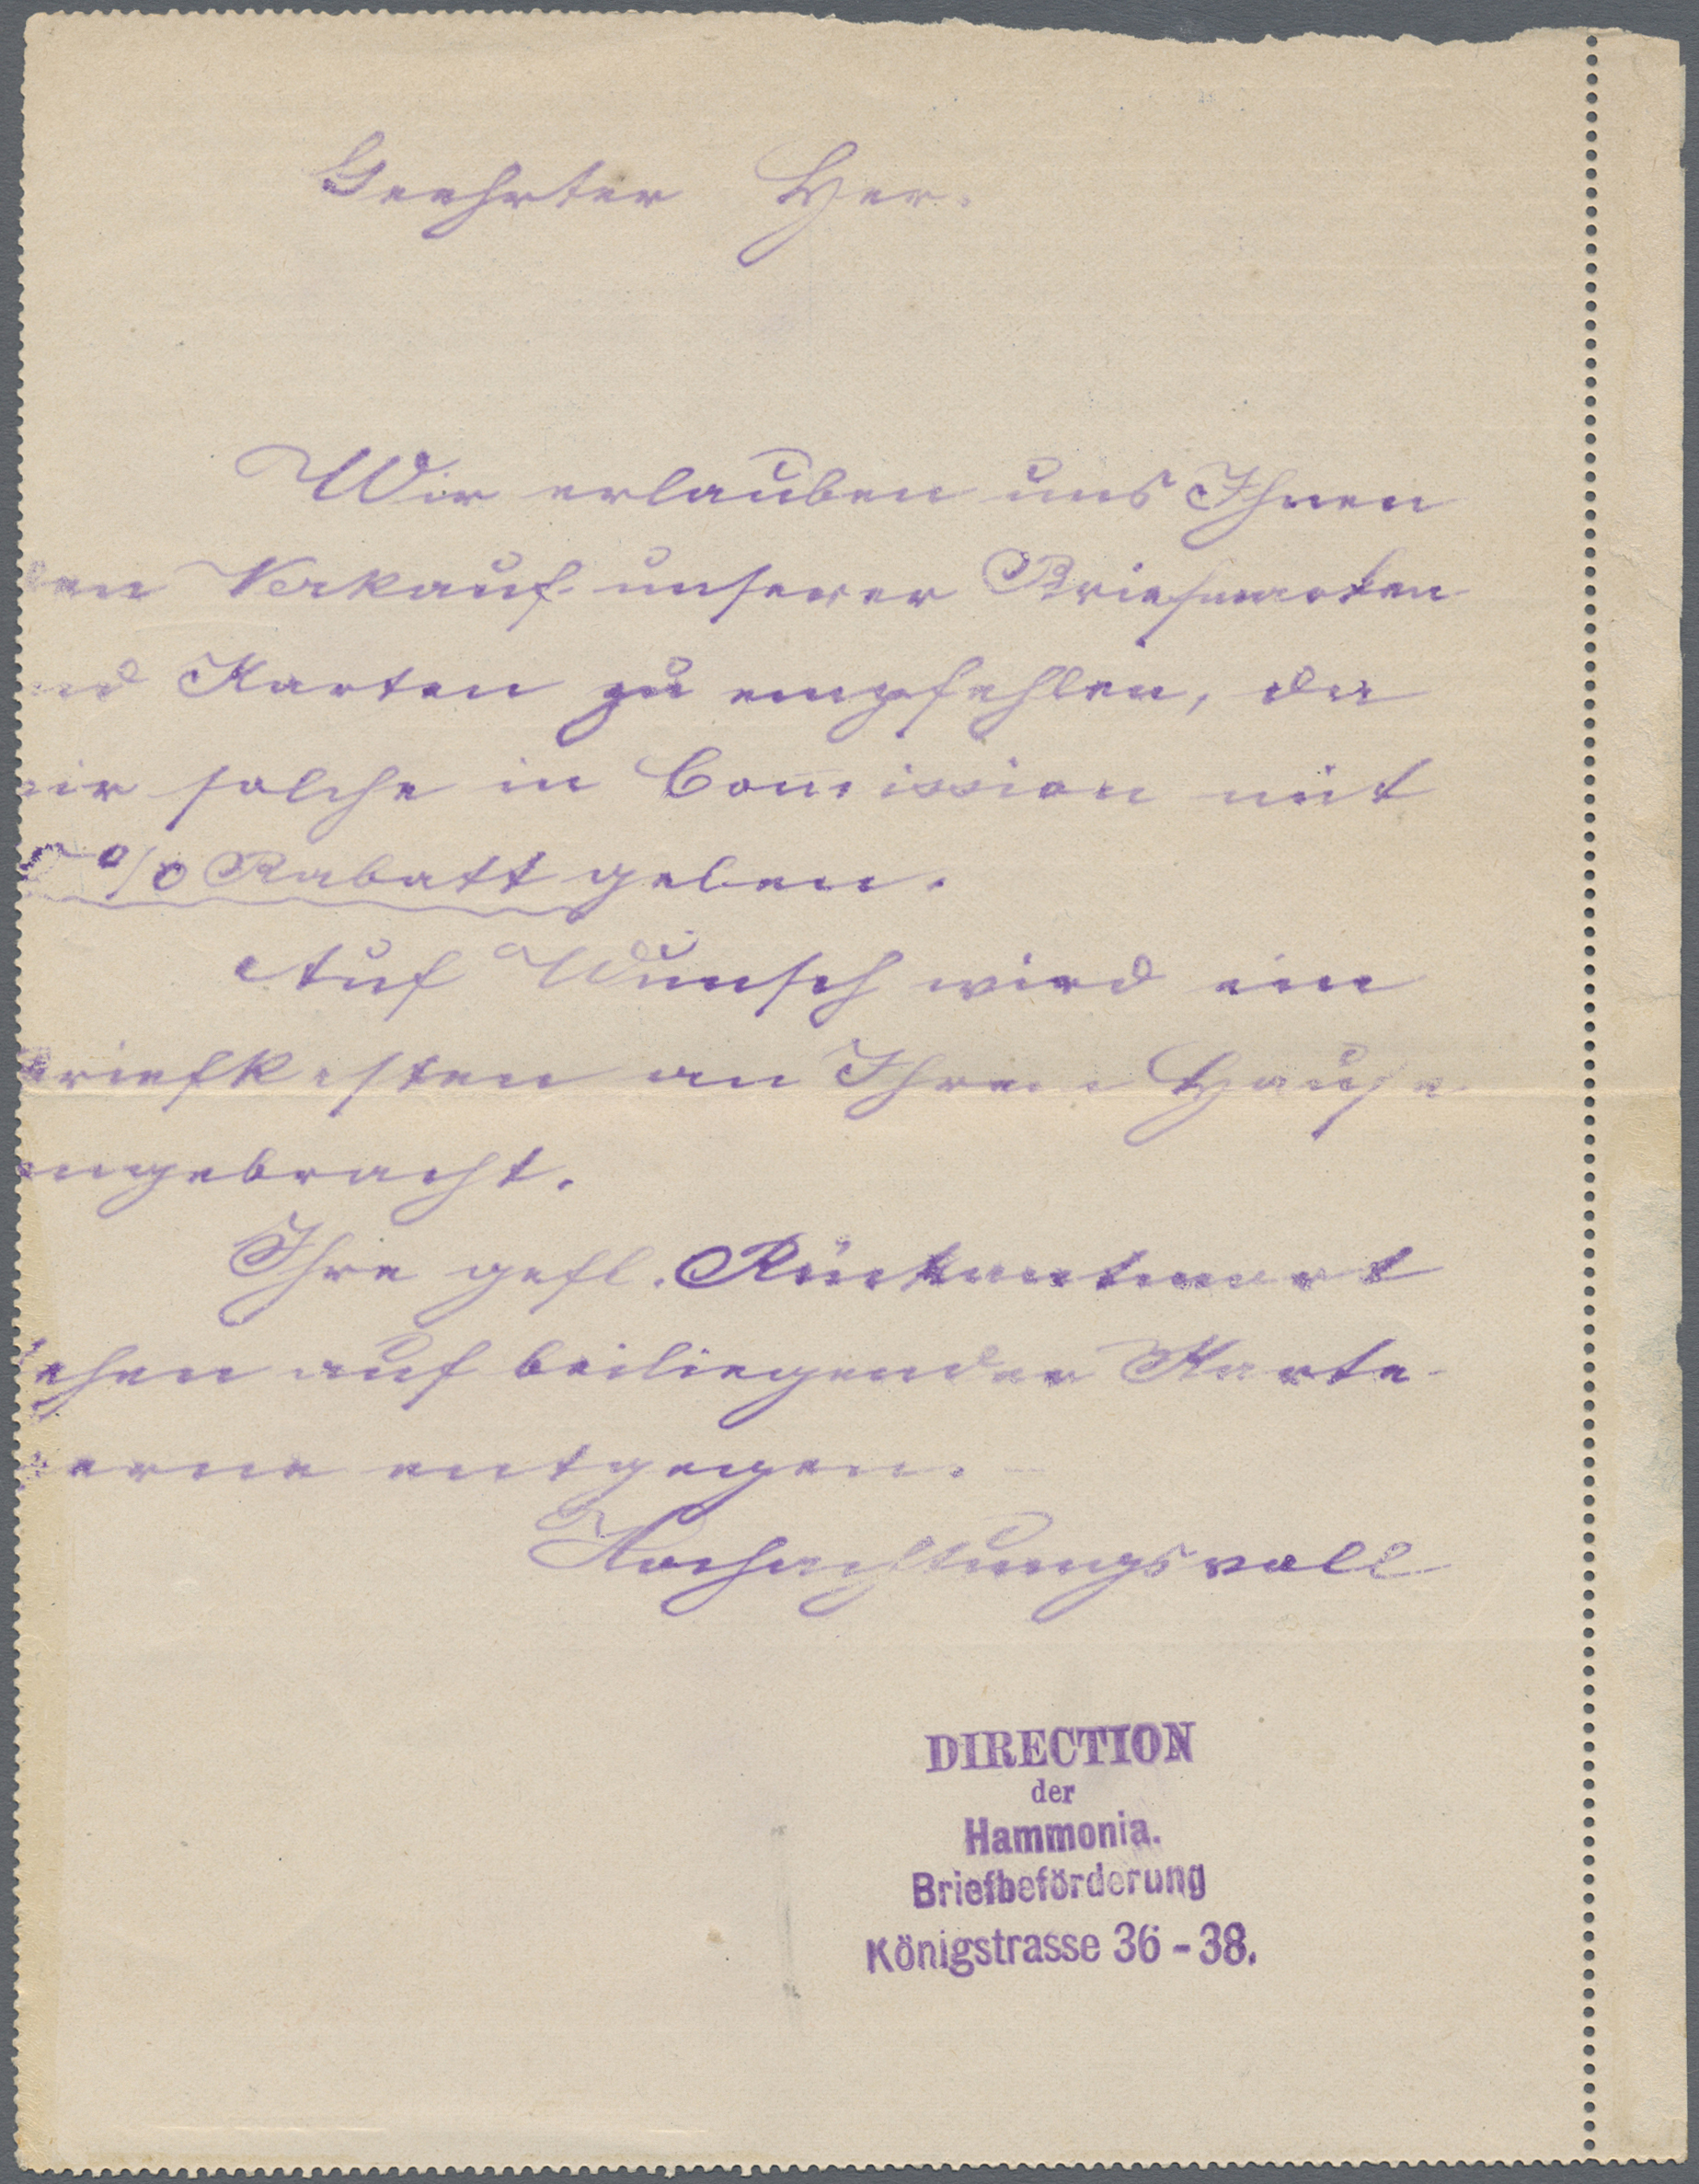 Geehrter Her.
Wir erlauben uns Ihnen
den Verkauf unserer Briefmarken
und Karten zu empfehlen, da
wir solche in Commission mit
% Rabatt geben.
Auf Wunsch wird ein
Briefkasten an Ihrem Hause
angebracht.
Ihre gefl. Rückantwort
sehen auf beiliegender Karte
gerne entgegen.
Hochachtungsvoll
DIRECTION
der
Hammonia.
Briefbeförderung
Königstrasse 36-38.